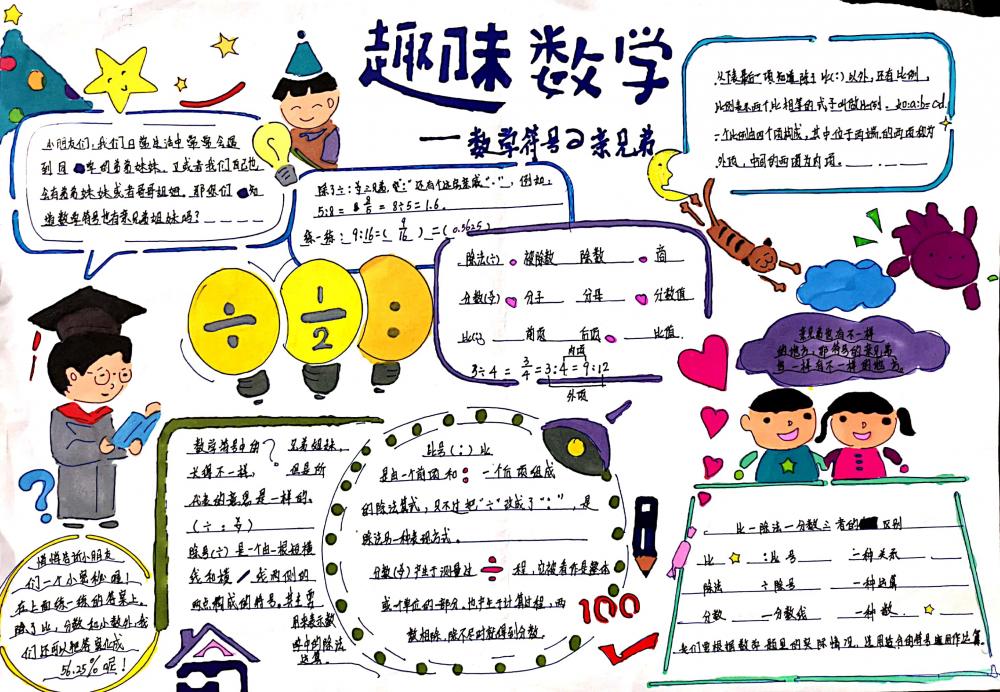 趣味数学
——数学符号の亲兄弟
小朋友们，我们日常生活中常常会遇
到同 车的弟弟妹妹，又或者我们自己也
会有弟弟妹妹或者哥哥姐姐，那您们 知
道数学符号也有亲兄弟姐妹吗？
除了÷：号之兄弟，把“：”还可个还能变成“-”，例如，
5:8 = 8/5 = 8÷5=1.6.
练一练：9:16=( 9/16 ) =( 0.5625 )
从下表最后一项知道除了比(:)以外，还有比例，
比例表示两个比相等的式子叫做比例。如a:b=cd.
一个比例由四个项构成，其中位于两端的两项称为
外项，中间的两项为内项。
除法(÷) 被除数 除数 商
分数(号) 分子 分母 分数值
比(:) 前项 后项 比值
内项
3÷4 = 3/4 = 3:4 = 9:12
外项
÷
1/2
:
亲兄弟也有不一样
的地方，那符号的亲兄弟
也一样有不一样的地方。
数学符号中的？兄弟姐妹，
长得不一样， 但是所
代表的意思是一样的。
(÷:号)
除号(÷)是一个由一根短横
线和横 线两侧的
两点构成的符号。其主要
用来表示数
学中的除法
运算。
比号(:)比
是由一个前项和:一个后项组成
的除法算式，只不过把“÷”改成了“:”，是
除法另一种表现方式。
分数(号)产生于测量过÷程，它被看作是整体
或一个单位的一部分，也产生于计算过程，两
数相除，除不尽时就得到分数。
100
悄悄告诉小朋友
们一个小奥秘喔！
在上面练一练的答案上，
除了比，分数和小数外，我
们还可以把答案化成
56.25%呢！
比—除法—分数三者的 区别
比 :比号 一种关系
除法 ÷除号 一种运算
分数 —分数线 一种数.
我们要根据数学题里的实际情况，选用适合的符号应用作运算。